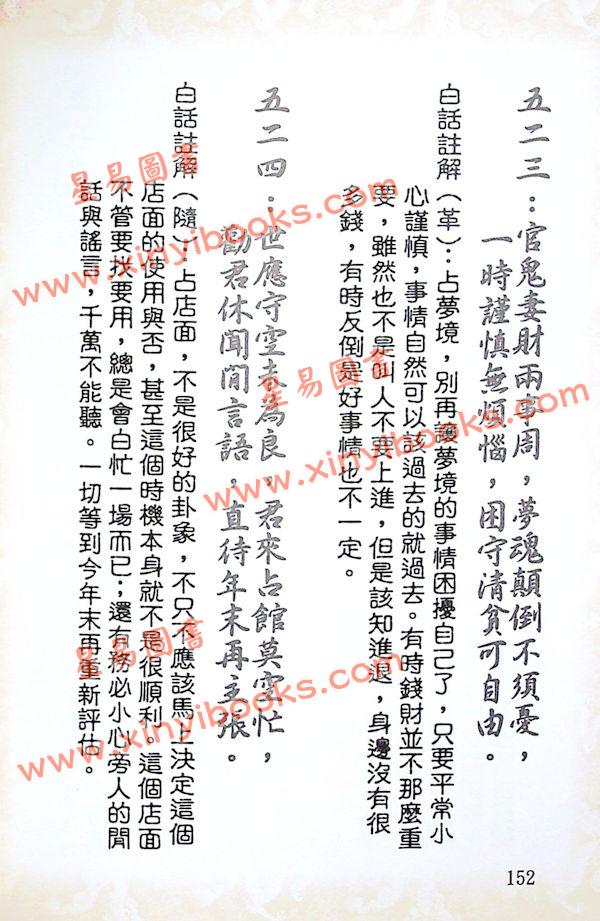 五二三：官鬼妻財兩事周，夢魂顛倒不須憂，
一時謹慎無煩惱，困守清貧可自由。
白話註解（革）：占夢境，別再讓夢境的事情困擾自己了，只要平常小
心謹慎，事情自然可以該過去的就過去。有時錢財並不那麼重
要，雖然也不是叫人不要上進，但是該知進退，身邊沒有很
多錢，有時反倒是好事情也不一定。
五二四：世應守空春為良，君來占館莫空忙，
勸君休聞閒言語，直待年末再主張。
白話註解（隨）：占店面，不是很好的卦象，不只不應該馬上決定這個
店面的使用與否，甚至這個時機本身就不是很順利。這個店面
不管要找要用，總是會白忙一場而已；還有務必小心旁人的閒
話與謠言，千萬不能聽。一切等到今年末再重新評估。
152
星易圖書
www.xinyibooks.com
星易圖書
www.xinyibooks.com
星易圖書
www.xinyibooks.com